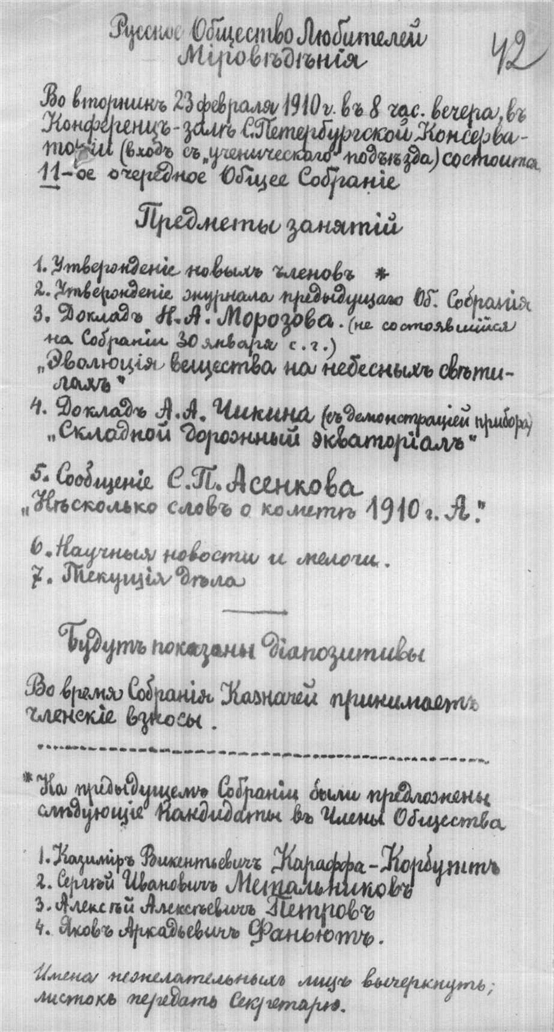 Русское Общество Любителей
Мiровѣдѣнiя
42
Во вторникъ 23 февраля 1910 г. въ 8 час. вечера, въ
Конференцъ-залѣ С.Петербургской Консерва-
торiи (входъ съ „ученическаго" подъѣзда) состоится
11-ое очередное Общее Собранiе
Предметы занятiй
1. Утвержденiе новыхъ членовъ *
2. Утвержденiе журнала предыдущаго Об. Собранiя
3. Докладъ Н. А. Морозова. (не состоявшiйся
на Собранiи 30 января с. г.)
„Эволюцiя вещества на небесныхъ свѣти-
лахъ"
4. Докладъ А. А. Чикина (съ демонстрацiей прибора)
„Складной дорожный экваторiалъ"
5. Сообщенiе С. П. Асенкова
„Нѣсколько словъ о кометѣ 1910 г. А."
6. Научныя новости и мелочи.
7. Текущiя дѣла
Будутъ показаны дiапозитивы
Во время Собранiя Казначей принимаетъ
членскiе взносы.
* На предыдущемъ Собранiи были предложены
слѣдующiе Кандидаты въ Члены Общества
1. Казимiръ Викентьевичъ Караффа-Корбуттъ
2. Сергѣй Ивановичъ Метальниковъ
3. Алексѣй Алексѣевичъ Петровъ
4. Яковъ Аркадьевичъ Фаньютъ.
Имена нежелательныхъ лицъ вычеркнуть;
листокъ передать Секретарю.